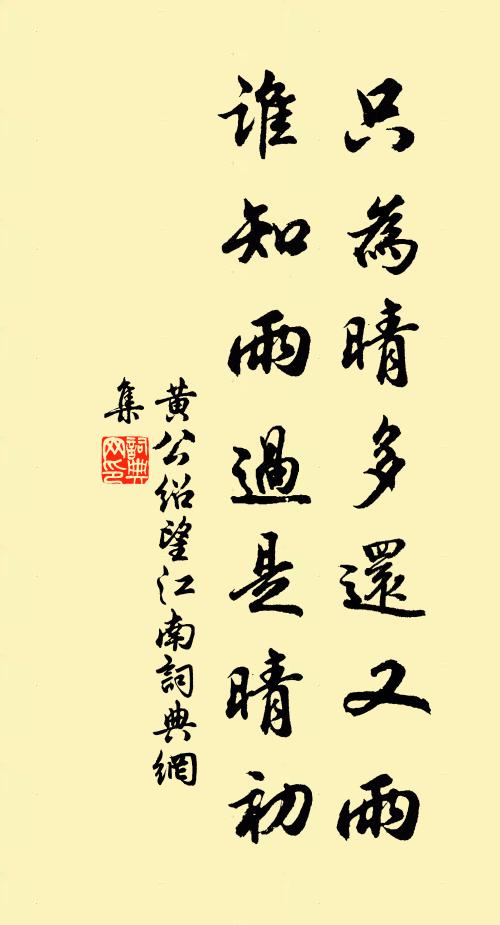 只為晴多還又雨
誰知雨過是晴初
黄公紹望江南詞典網
集
詞典網印